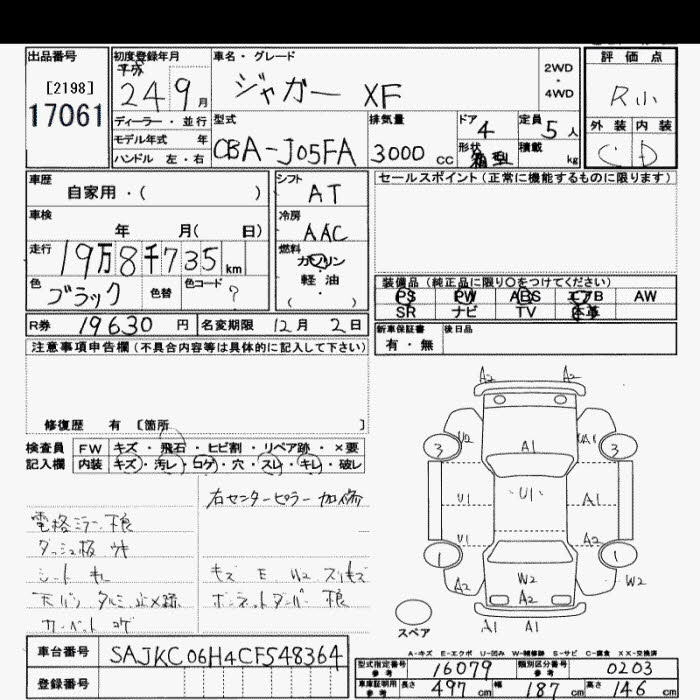 出品番号
[2198]
17061
初度登録年月
平成
24 9 月
車名・グレード
ジャガー XF
2WD
・
4WD
評価点
R小
ディーラー・並行
モデル年式 年
ハンドル 左・右
型式
CBA-J05FA
排気量
3000 cc
ドア
4
形状
箱型
定員
5 人
積載
kg
外装 内装
C D
車歴
自家用・( )
シフト
AT
セールスポイント(正常に機能するものに限ります)
車検
年 月( 日)
冷房
AAC
走行
19万8千735 km
燃料
ガソリン
軽油
( )
色
ブラック
色替
色コード
?
装備品(純正品に限り○をつけてください)
PS PW ABS エアB AW
SR ナビ TV 本革
R券 19630 円
名変期限 12月 2日
新車保証書
有・無
後日品
注意事項申告欄(不具合内容等は具体的に記入して下さい)
修復歴 有 [箇所 ]
検査員
記入欄
FW キズ・飛石・ヒビ割・リペア跡・×要
内装 キズ・汚レ・コゲ・穴・スレ・キレ・破レ
右センターピラー 加修
電格ミラー 不良
ダッシュ板 ウキ
シート キレ
天バリ タルミ 止メ跡
カーペット コゲ
キズ E W2 スリキズ
ボンネットダンパー 不良
A2 A2
3 U2 A1 UA1 3
U1 U1 A1
U1 A2
1 1
A2 W2 W2
A2
A1 A1
スペア
A-キズ E-エクボ U-凹み W-補修跡 S-サビ C-腐食 XX-交換済
車台番号 SAJKC06H4CFS48364
登録番号
型式指定番号
参考
16079
類別区分番号
参考
0203
車庫証明用
参考
長さ 497 cm 幅 187 cm 高さ 146 cm